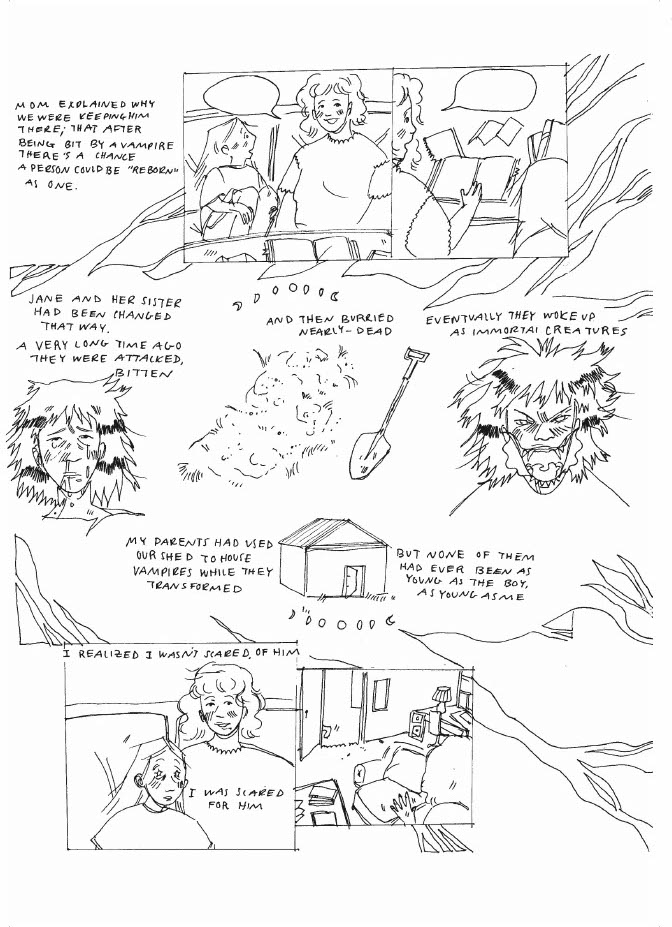 MOM EXPLAINED WHY
WE WERE KEEPING HIM
THERE; THAT AFTER
BEING BIT BY A VAMPIRE
THERE'S A CHANCE
A PERSON COULD BE "REBORN"
AS ONE.
JANE AND HER SISTER
HAD BEEN CHANGED
THAT WAY.
A VERY LONG TIME AGO
THEY WERE ATTACKED,
BITTEN
AND THEN BURRIED
NEARLY-DEAD
EVENTUALLY THEY WOKE UP
AS IMMORTAL CREATURES
MY PARENTS HAD USED
OUR SHED TO HOUSE
VAMPIRES WHILE THEY
TRANSFORMED
BUT NONE OF THEM
HAD EVER BEEN AS
YOUNG AS THE BOY,
AS YOUNG AS ME
I REALIZED I WASN'T SCARED, OF HIM
I WAS SCARED
FOR HIM